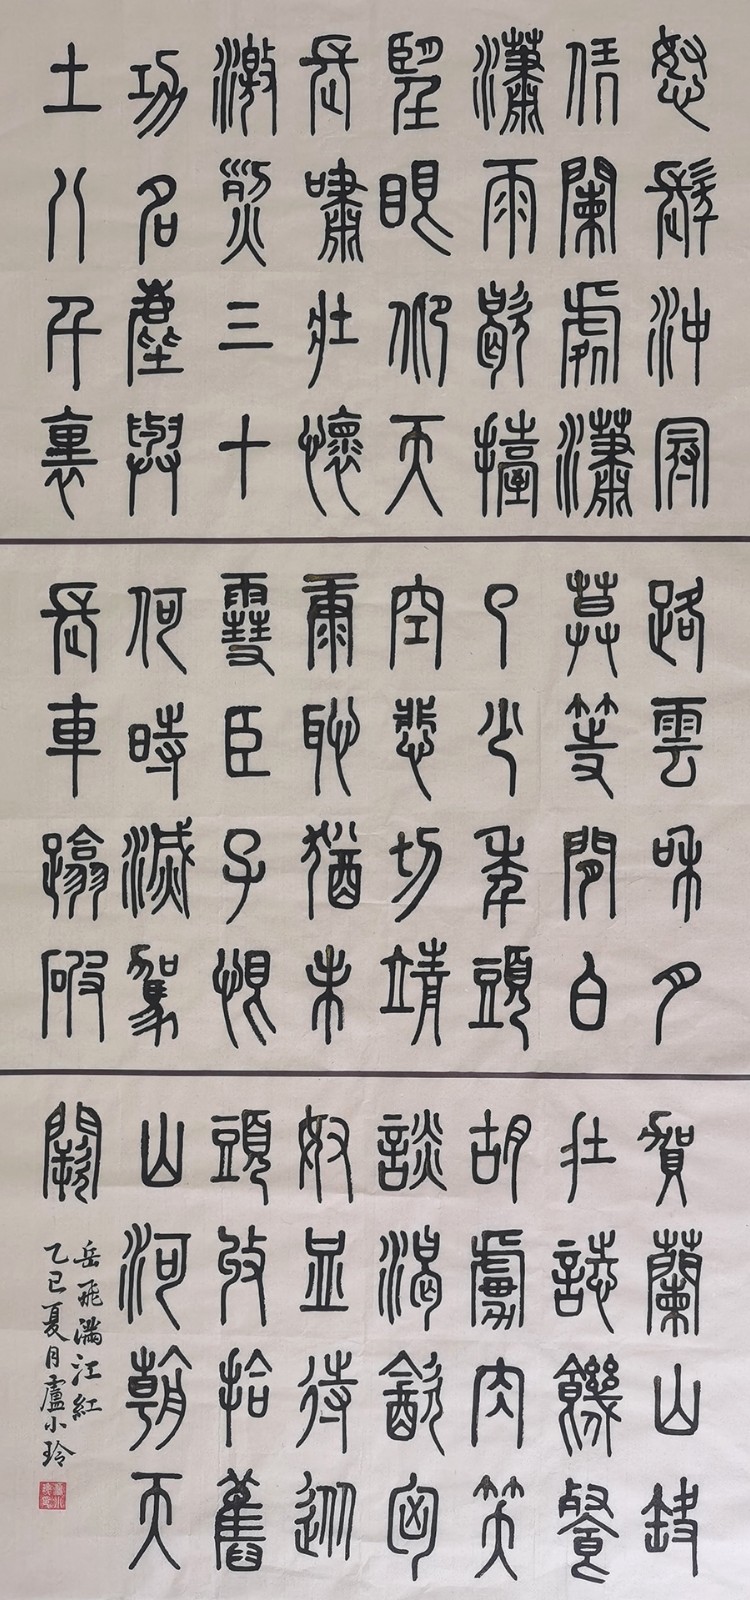 怒髮沖冠
凭闌處瀟
瀟雨歇擡
望眼仰天
長嘯壯懷
激烈三十
功名塵與
土八千裏
路雲和月
莫等閒白
了少年頭
空悲切靖
康恥猶未
雪臣子恨
何時滅駕
長車蹋破
賀蘭山缺
壯誌饑餐
胡虜肉笑
談渴飲匈
奴血待從
頭收拾舊
山河朝天
闕
岳飛滿江紅
乙巳夏月盧小玲